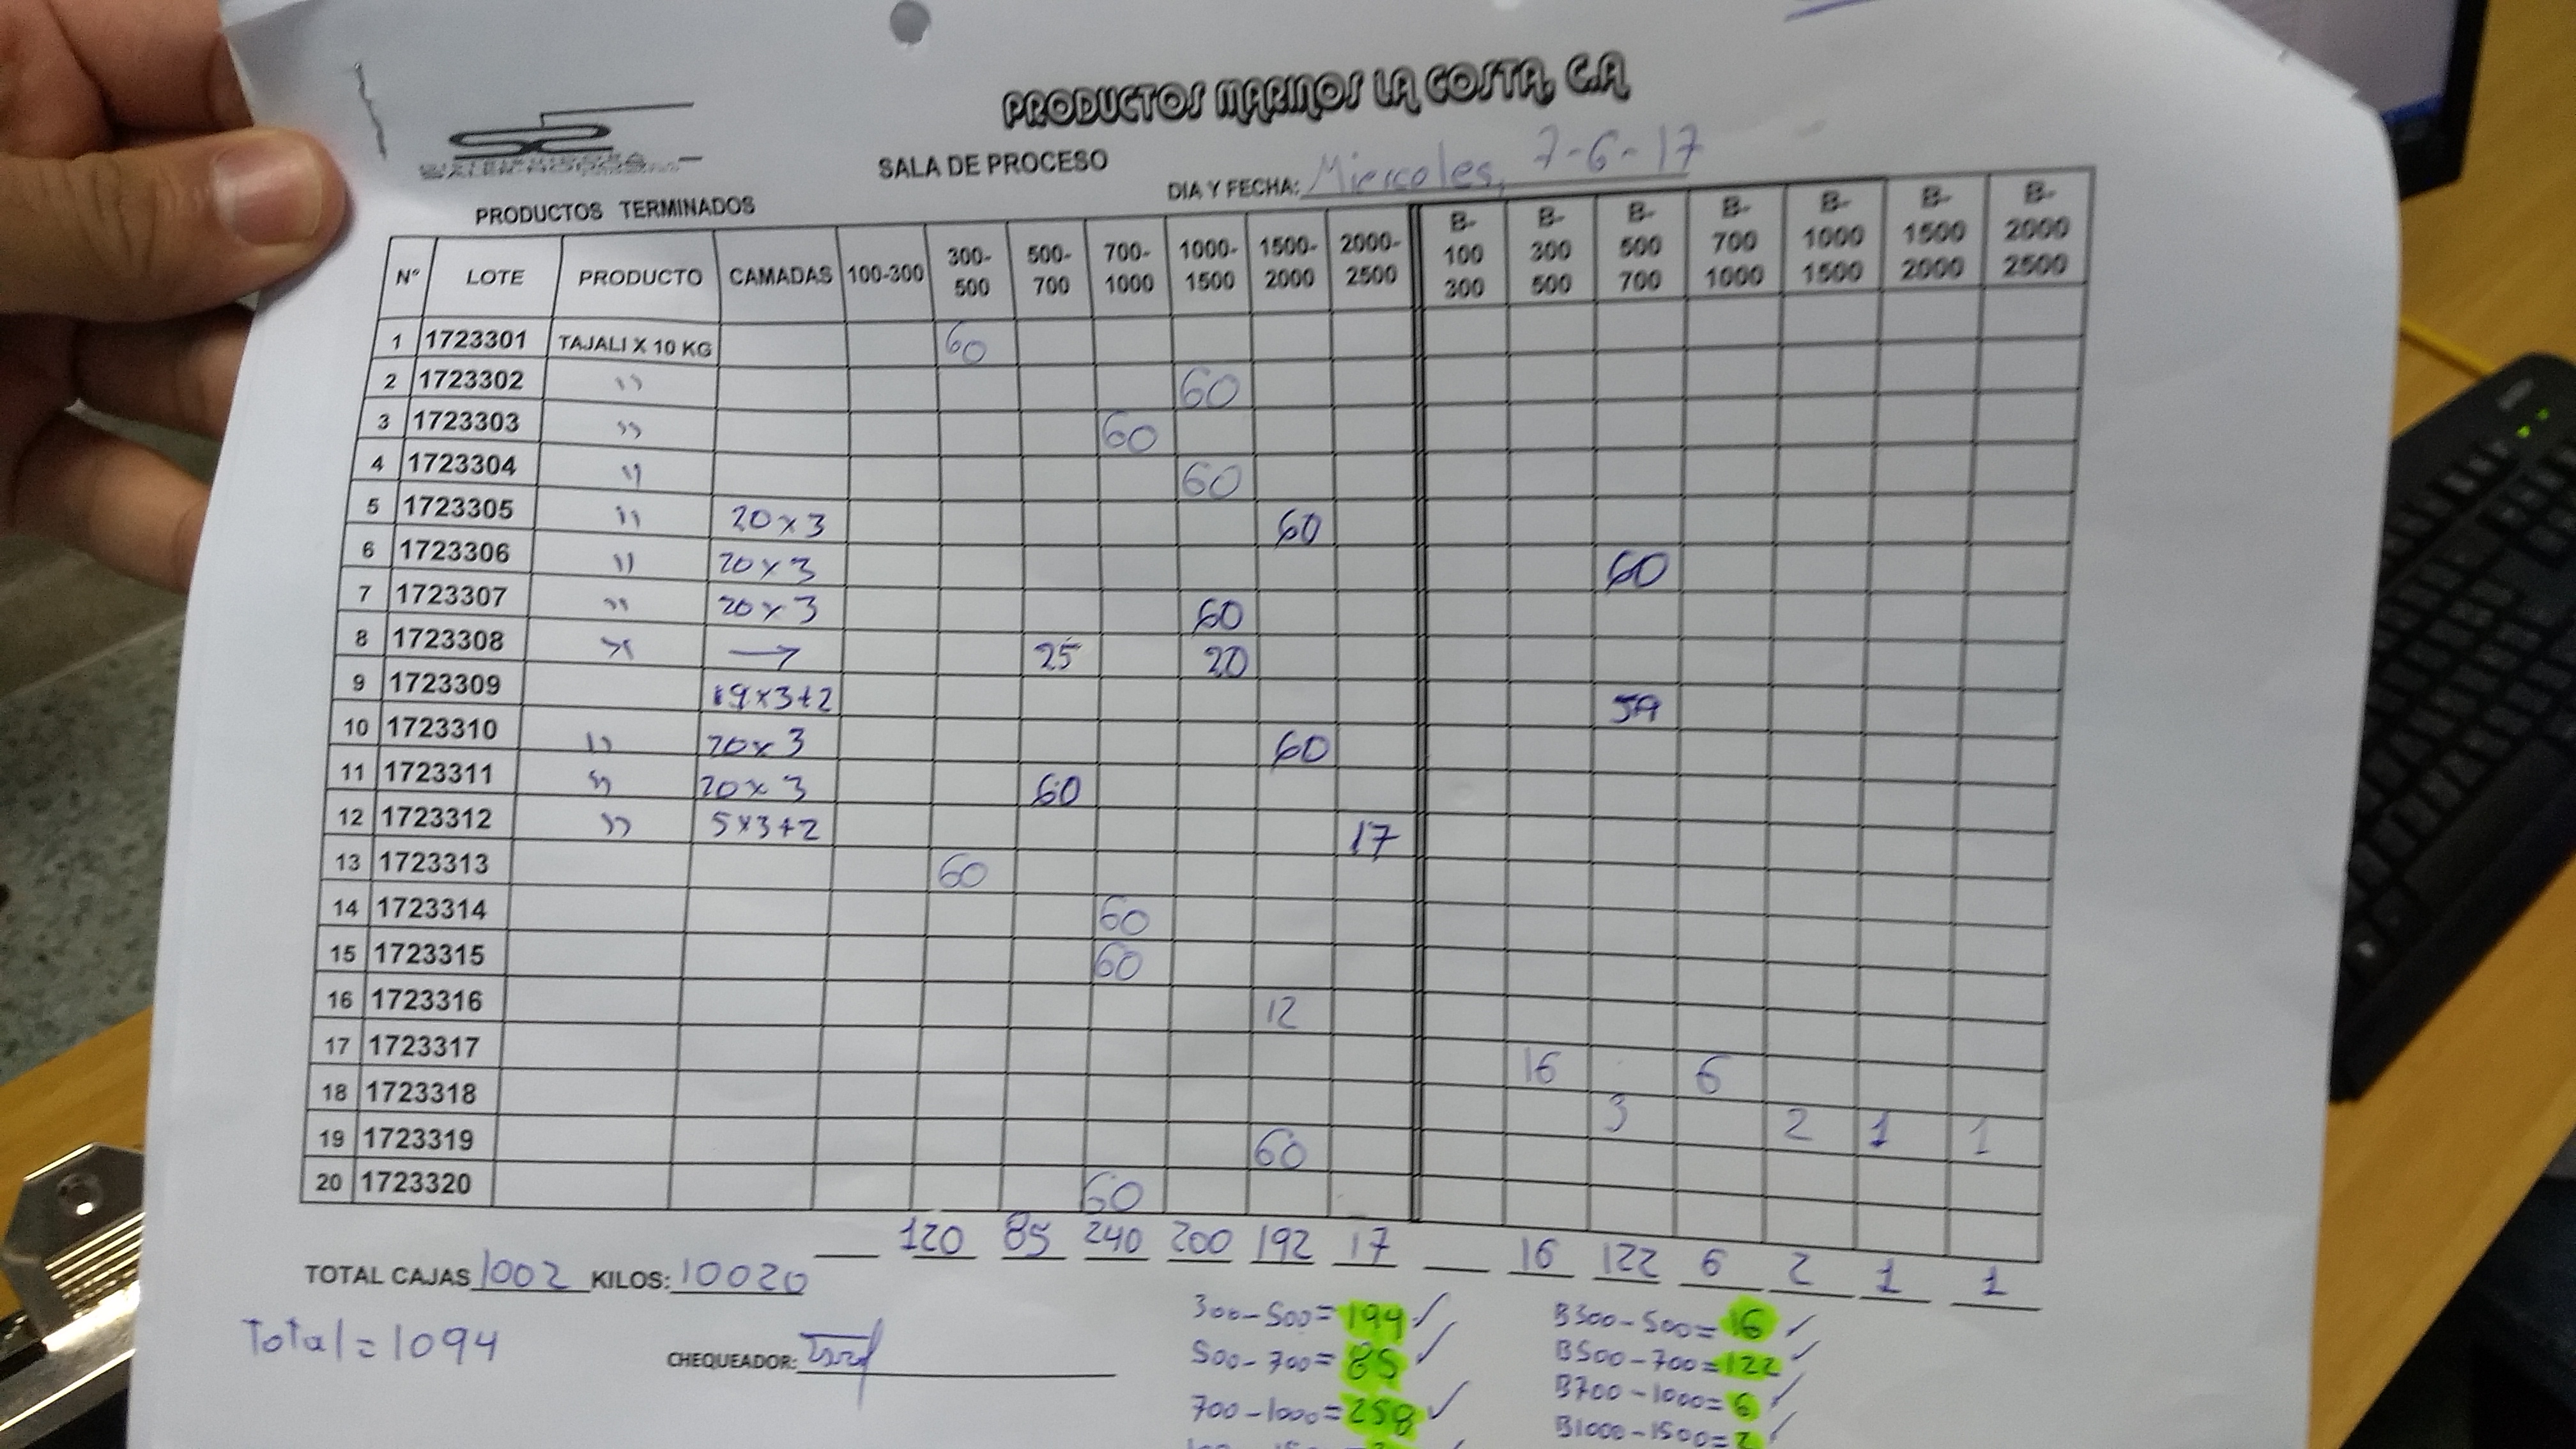 PRODUCTOS MARINOS LA COSTA, C.A
SALA DE PROCESO
DIA Y FECHA: Miercoles, 7-6-17
PRODUCTOS TERMINADOS
N° LOTE PRODUCTO CAMADAS 100-300 300-500 500-700 700-1000 1000-1500 1500-2000 2000-2500 B-100 300 B-300 500 B-500 700 B-700 1000 B-1000 1500 B-1500 2000 B-2000 2500
1 1723301 TAJALI X 10 KG 60
2 1723302 " 60
3 1723303 " 60
4 1723304 " 60
5 1723305 " 20 x 3 60
6 1723306 " 20 x 3 60
7 1723307 " 20 x 3 60
8 1723308 " → 25 20
9 1723309 19x3+2 59
10 1723310 " 20x 3 60
11 1723311 " 20x 3 60
12 1723312 " 5x3+2 17
13 1723313 60
14 1723314 60
15 1723315 60
16 1723316 12
17 1723317 16 6
18 1723318 3 2 1 1
19 1723319 60
20 1723320 60
120 85 240 200 192 17 16 122 6 2 1 1
TOTAL CAJAS 1002 KILOS: 10020
Total = 1094
CHEQUEADOR:
300-500= 194 ✓ B300-500= 16 ✓
500-700= 85 ✓ B500-700= 122 ✓
700-1000= 258 ✓ B700-1000= 6 ✓
B1000-1500= 2 ✓